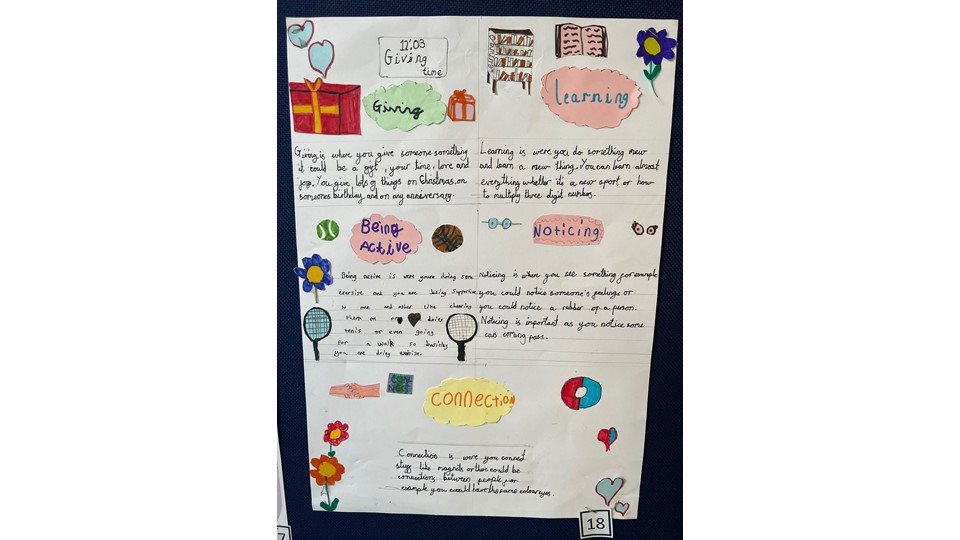 12:03
Giving
time
Giving
Learning
Giving is where you give someone something
it could be a gift, your time, love and
joy. You give lots of things on Christmas, on
someones birthday and on any anniversary.
Learning is were you do something new
and learn a new thing. You can learn almost
everything whether it's a new sport or how
to multiply three digit numbers.
Being
Active
Noticing
Being active is were youre doing some
exersise and you are being supportive
to one and other like cheering
them on or doing
tenis or even going
for a walk so basicley
you are doing exersise.
Noticing is where you see something for example
you could notice someone's feelings or
you could notice a rubber of a person.
Noticing is important as you notice
cas coming pass.
connection
Connection is were you connect
stuff like magnets or there could be
connections between people for
example you could have the same colour eyes.
18
7